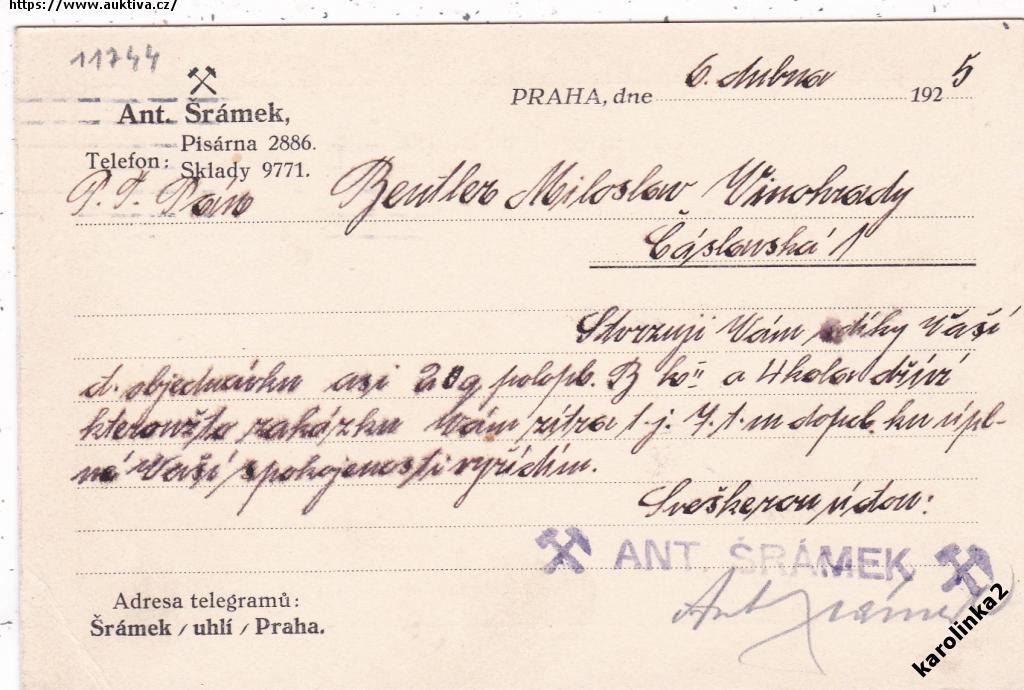 https://www.auktiva.cz/
11744
Ant. Šrámek,
Telefon: Pisárna 2886.
Sklady 9771.
PRAHA, dne 6. dubna 1925
P. T. Pán Beutler Miloslav Vinohrady
Čáslavská 1
Stvrzuji Vám díky Vaší
ct. objednávku asi 20 q polopb. B a 4 kola dříví
kteroužto zakázku Vám zítra t.j. 7. t. m dopol. ku úpl-
né Vaší spokojenosti vyřídím.
Sveškerou úctou:
ANT. ŠRÁMEK
Ant Šrámek
Adresa telegramů:
Šrámek / uhlí / Praha.
karolinka2